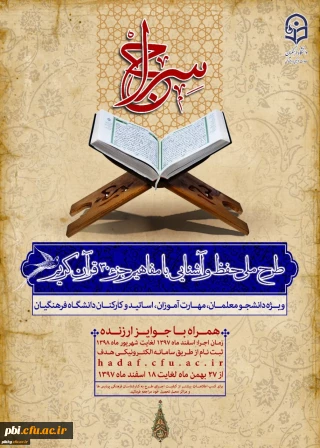 سراج
طرح ملی حفظ و آشنایی با مفاهیم جزء ۳۰ قرآن کریم
ویژه دانشجو معلمان، مهارت آموزان، اساتید و کارکنان دانشگاه فرهنگیان
همراه با جوایز ارزنده
زمان اجرا: اسفند ماه ۱۳۹۷ لغایت شهریور ماه ۱۳۹۸
ثبت نام از طریق سامانه الکترونیکی هدف
hadaf.cfu.ac.ir
از ۲۷ بهمن ماه لغایت ۱۸ اسفند ماه ۱۳۹۷
pbi.cfu.ac.ir